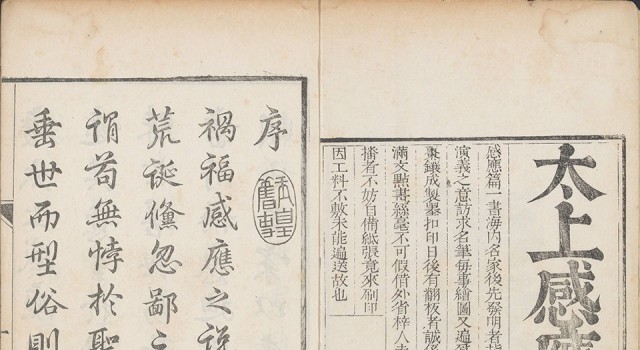 太上感應
感應篇一書海内名家後先發明者
演義之意訪求名筆每事繪圖又遍
棗鋟成製摹扣印日後有翻板者誠
滿文點畫絲毫不可假借外省梓人
播者不妨自備紙張竟來刷印
因工料不敷未能遍送故也
序
禍福感應之說
荒誕儵忽鄙之
謂苟無悖於聖
垂世而型俗則